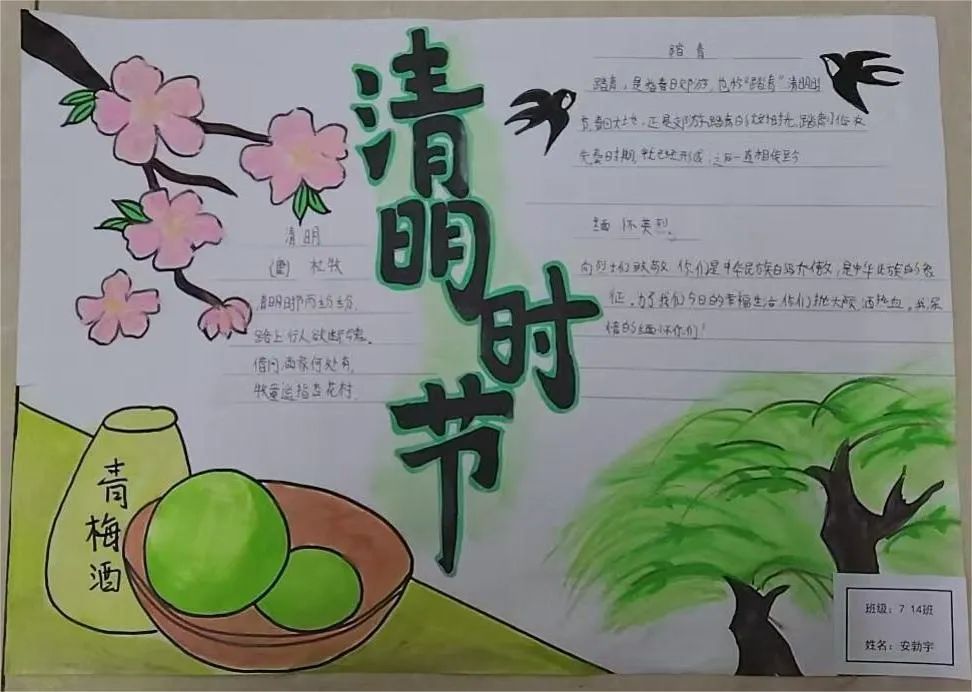 清明时节
清明
(唐) 杜牧
清明时节雨纷纷，
路上行人欲断魂。
借问酒家何处有，
牧童遥指杏花村
踏青
踏青，是指春日郊游，也称"踏春"清明时
节,春回大地，正是郊游踏青的大好时光,踏青习俗在
先秦时期,就已经形成，之后一直相传至今
缅怀英烈。
向烈士们致敬 你们是中华民族的骄傲，是中华民族的象
征。为了我们今日的幸福生活,你们抛头颅,洒热血。我深
情的缅怀你们！
青梅酒
班级：7 14班
姓名：安勃宇